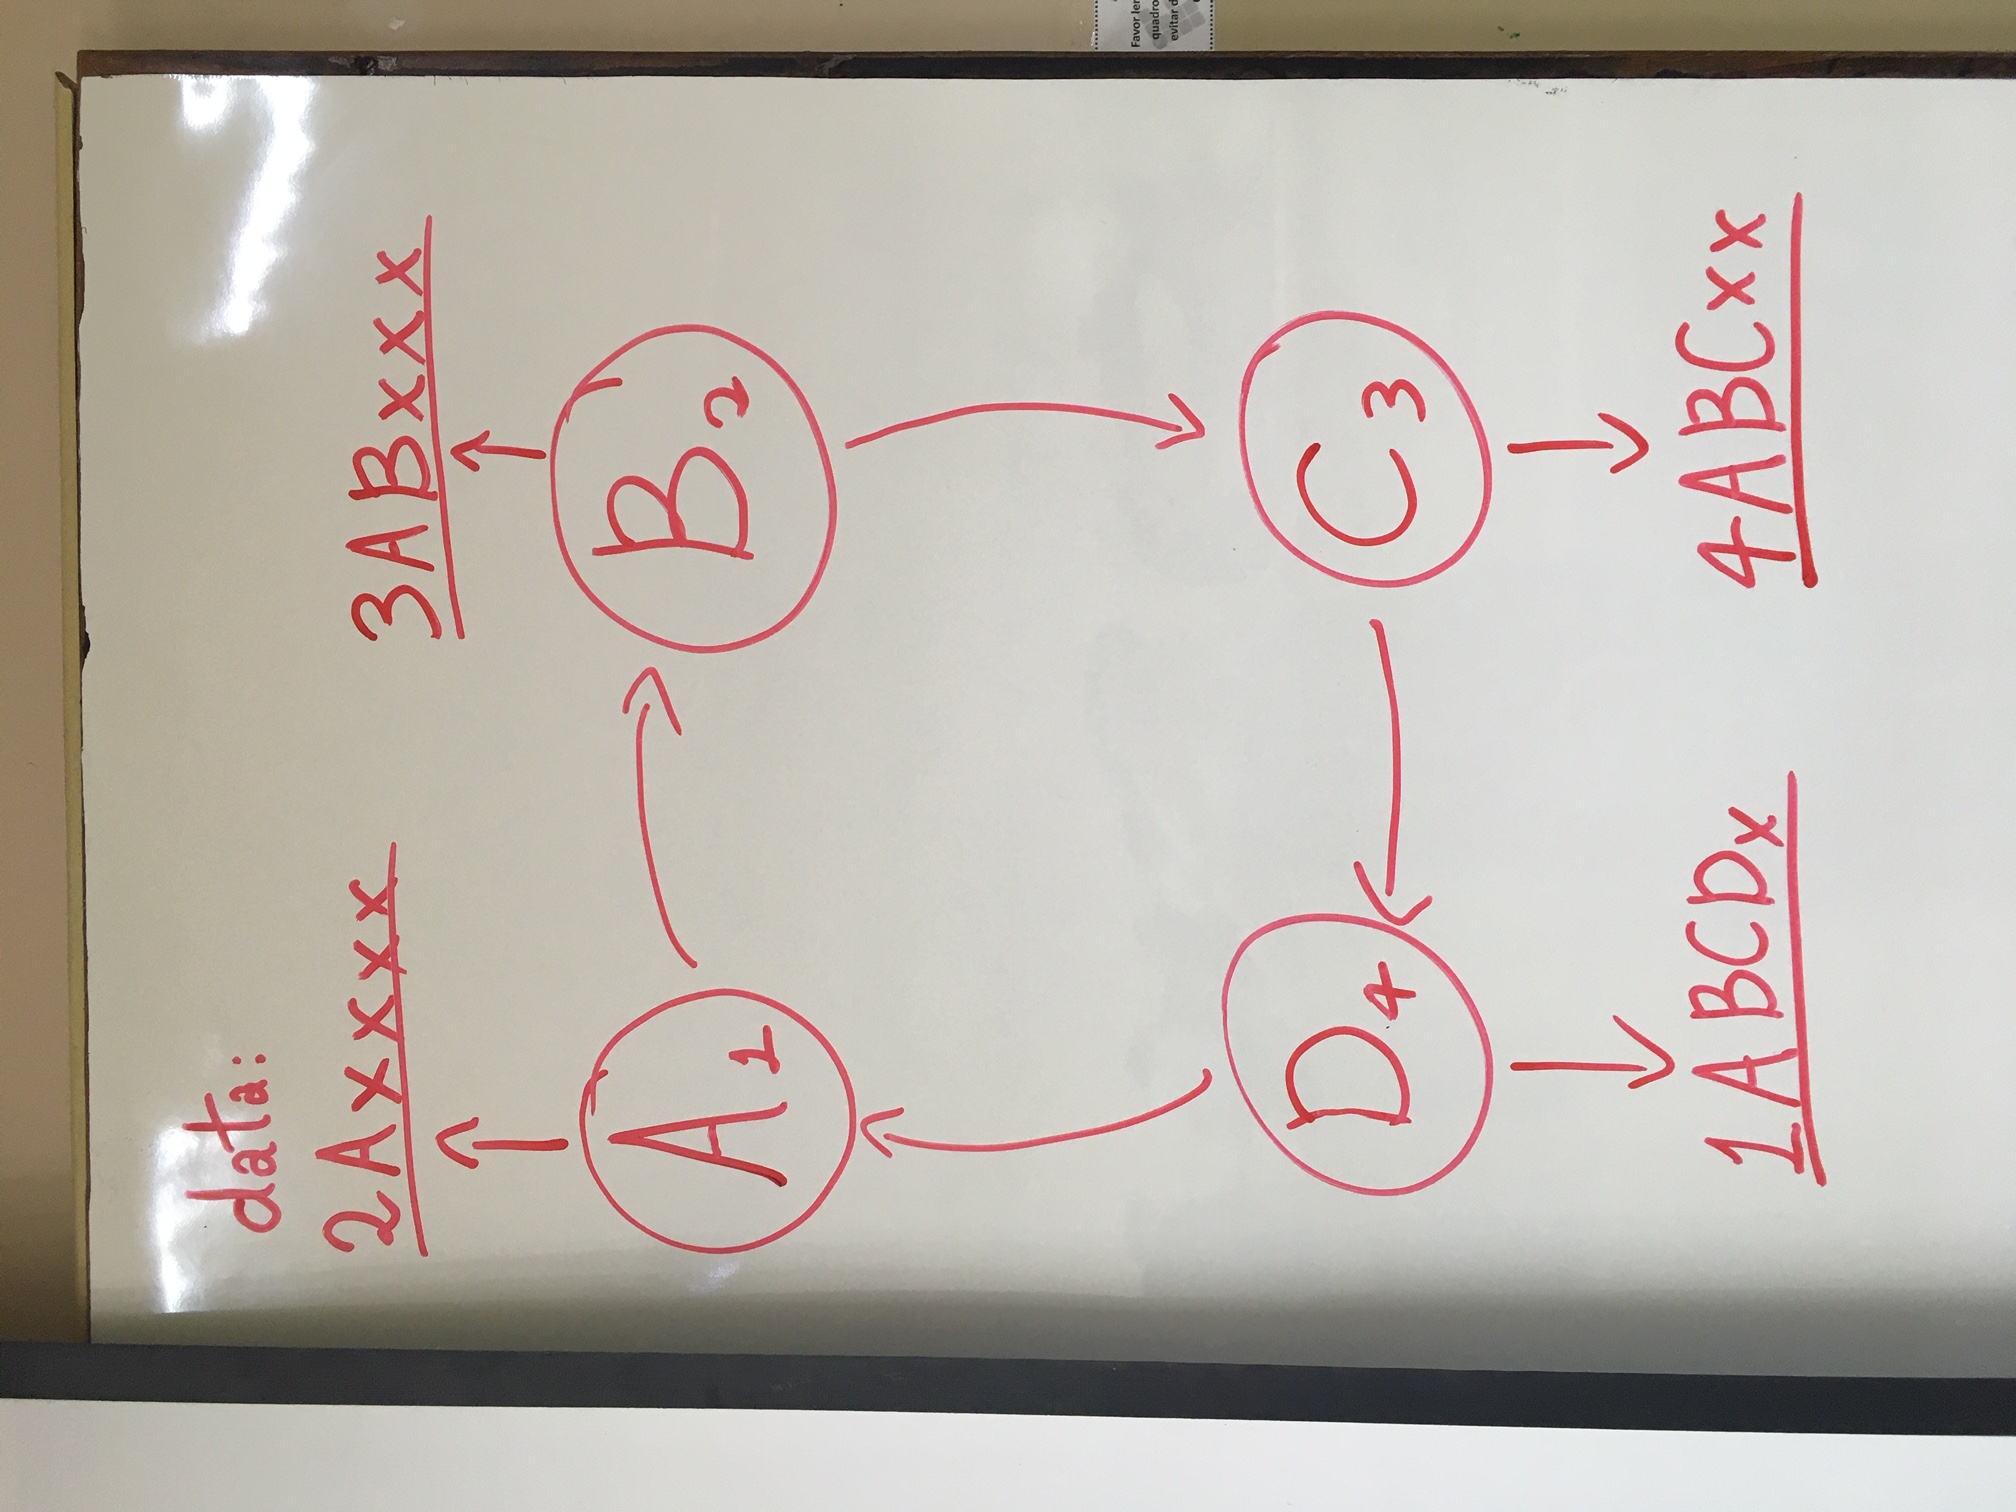 data:
2Axxxx
3ABxxx
A1
B2
D4
C3
1ABCDx
4ABCxx
Favor
quadro
evitar